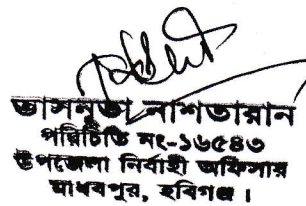 তাসনুভা নাশতারান
পরিচিতি নং-১৬৫৪৩
উপজেলা নির্বাহী অফিসার
মাধবপুর, হবিগঞ্জ।